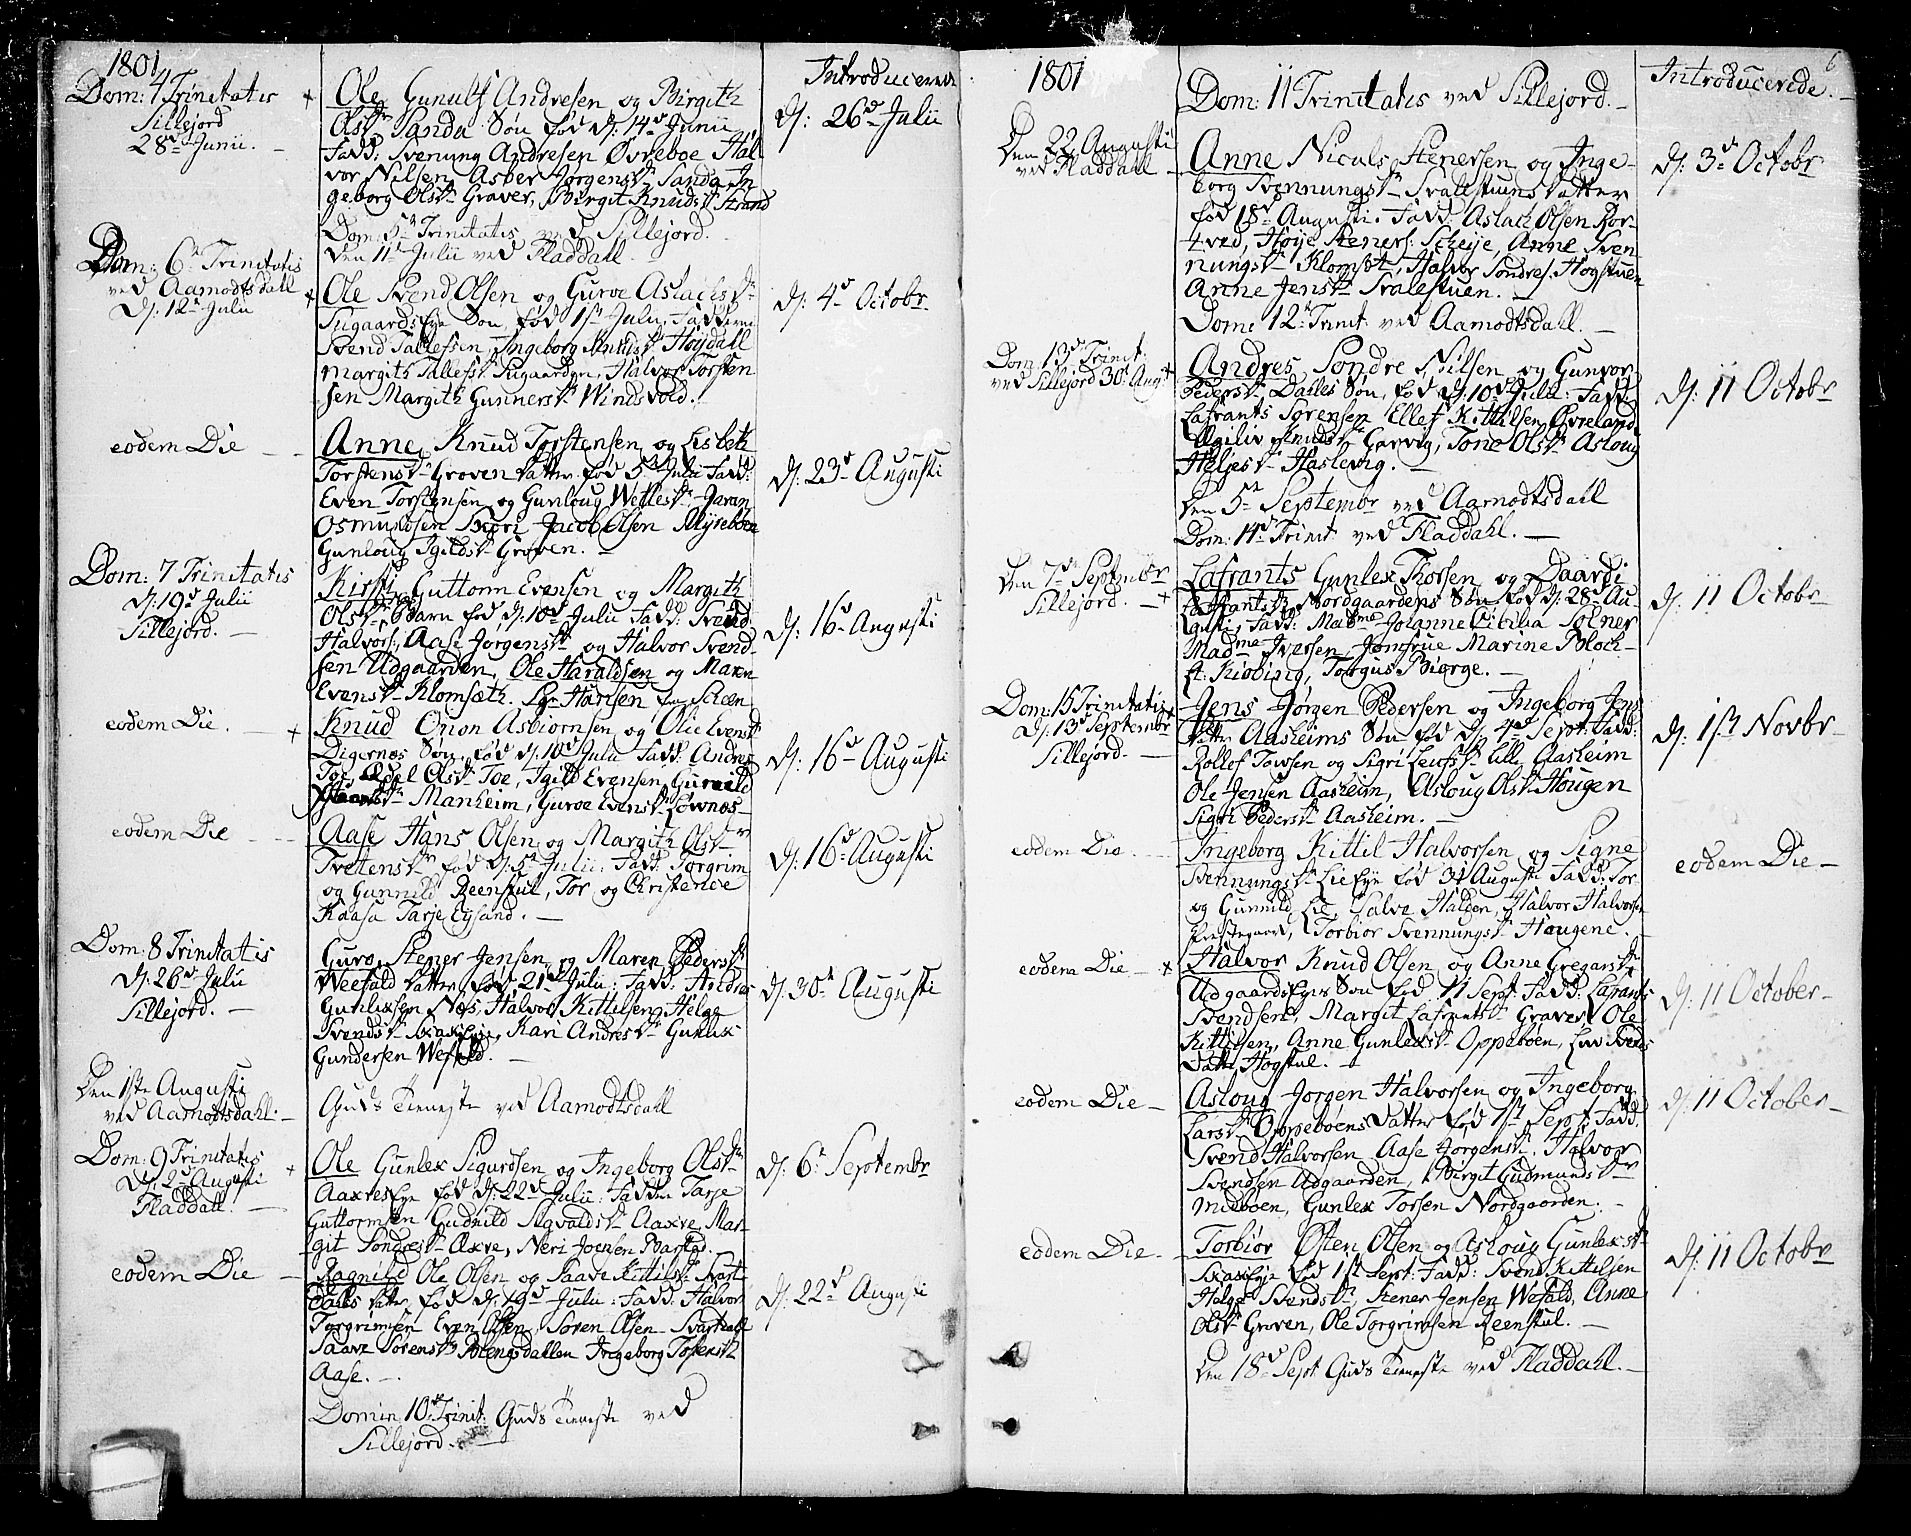 1801
Dom: 4 Trinitatis
Sillejord
28de Junii.
Introducerede
Ole Gunulf Andresen og Birgith
Olsdr Sanda Søn fød d: 14de Junii
Fadd: Svenung Andresen Øvreboe Hal-
vor Nilsen Asber Jørgensdr Sanda In-
geborg Olsdr Graver, Birgit Knudsdr Strand
d: 26de Julii
Dom: 5te Trinitatis ved Sillejord.
Den 11te Julii ved Fladdall.
Dom: 6te Trinitatis
ved Aamodtsdall
d: 12te Julii
Ole Svend Olsen og Guroe Aslachsdr
Sugaards Eye Søn, fød 1ste Julii, Fadderne
Svend Tallefsen, Ingeborg Knudsdr Høydall
Margith Tallefsdr Sugaarden, Halvor Torsten-
sen Margith Gunnersdr Windsvold.
d: 4de Octobr
eodem Die
Anne, Knud Torstensen og Lisbeth
Torstensdr Groven Datter fød 5te Julii Fadd:
Even Torstensen og Gunloug Wetlesdr Jaran
Osmundsen Jacob Olsen Myreboen
Gunloug Igildsdr Groven.
d: 23de Augusti
Dom: 7 Trinitatis
d: 19de Julii
Sillejord.
Kirsti Guttorm Evensen og Margith
Olsdr Barn fød d: 10de Julii Fadd: Svend
Halvors: Aase Jørgensdr og Halvor Svend-
sen Udgaarden, Ole Haraldsen og Maren
Evensdr Klomsæth. Hansen fra Scheen
d: 16de Augusti
eodem Die.
Knud Onon Asbiornsen og Olie Evensdr
Digernæs Søn, fød d: 10de Julii Fadd: Andres
Toe, Edel Olsdr Toe, Igild Evensen Gunnild
Manheim, Guroe Evensdr Løvnæs
d: 16de Augusti
eodem Die
Aase Hans Olsen og Margith Olsdr
Tvetensdr fød d: 5te Julii: Fadd: Torgrim
og Gunnild Reenstul, Tor og Christence
Kaasa Tarje Eysand.
d: 16de Augusti
Dom: 8 Trinitatis
d: 26de Julii
Sillejord.
Guro, Stener Jensen og Maren Pedersdr
Weefald Datter fød 21de Julii: Fadd: Andres
Gunlexsen Næs, Halvor Kittilsen, Helge
Svendsdr Skaxeeje, Kari Andresdr Gunlex
Gundersen Wefald.
d: 30te Augusti
Den 1ste Augusti
ved Aamodtsdahl.
Guds Tieneste ved Aamodtsdall
Dom: 9 Trinitatis
d: 2de Augusti
Fladdall.
Ole Gunlex Sigurdsen og Ingeborg Olsdr
Aaxres Eye fød d: 22de Julii: Faddere Tarje
Guttormsen Gudnild Sigvaldsdr Aaxre, Mar-
git Sondresdr Axre, Neri Joensen Barstad.
d: 6te Septembr
eodem Die
Ragnild Ole Olsen og Saave Kittilsdr Svart-
dals Datter, fød d: 19de Julii: Fadd: Halvor
Torgrimsen Even Olsen, Soren Olsen Svartdall
Saave Sorensdr Blengsdallen Ingeborg Tostensdr
Aase.
d: 22de Augusti
Domin. 10de Trinit: Guds Tieneste ved
Sillejord.
1801
6
Dom: 11 Trinitatis ved Sillejord.
Introducerede.
Den 22 Augusti
ved Fladdall
Anne Niculs Stenersen og Inge-
borg Svennungsdr Svalestuens Datter
fød 18de Augusti. Fadd: Aslach Olsen Ror-
tved, Høye Steners: Scheye, Anne Sven-
nungsdr Klomsæt, Halvor Sondres: Høgstuen
Anne Jensdr Svalestuen.
d: 3de Octobr
Dom: 12te Trinit: ved Aamodtsdahl.
Dom 13de Trinit:
ved Sillejord 30te Augti
Andres, Sondre Nilsen og Gunvor
Pedersdr Dalles Søn, fød d: 10de Julii: Fadd:
Lafrants Sorensen Ellef Kittilsen Øvreland
Egiliv Knudsdr Garvig, Tone Olsdr Asloug
Heljesdr Haslevig.
d: 11 Octobr
Den 5te Septembr ved Aamodtsdall
Dom: 14de Trinit ved Fladdahl.
Den 7de Septembr
Sillejord.
Lafrants Gunlex Thorsen og Daardi
Lafrantsdr Nordgaardens Søn, fød d: 28de Au-
gusti, Fadd: Madme Johanne Cicilia Tolner
Madme Iversen, Jomfrue Marine Bloch
H. Kiobing, Torgus Biørge.
d: 11 Octobr
Dom: 15 Trinitatis
d: 13de Septembr
Sillejord.
Jens Jørgen Pedersen og Ingeborg Jens
datter Aasheims Søn fød d: 4de Sept: Fadd:
Rollef Tovsen og Sigri Leufsdr Lille Aasheim
Ole Jensen Aasheim, Asloug Olsdr Hougen
Sigri Pedersdr Aasheim.
d: 1ste Novbr
eodem Die.
Ingeborg Kittil Halvorsen og Signe
Svennungsdr Lie Eye fød 31 Augusti Fadd: Tor
og Gunnild Lie, Salve Halden, Halvor Halvorsen
Præstegaard, Torbior Svennungsdr Haugene.
eodem Die
eodem Die
Halvor Knud Olsen og Anne Gregarsdr
Udgaards Eyes Søn fød 11 Sept: Fadd: Lafrants
Svendsen, Margit Lafrantsdr Graver, Ole
Kittilsen, Anne Gunlexsdr Oppeboen, Liv Svends
Datter Høgstul.
d: 11 October
eodem Die
Asloug Jørgen Halvorsen og Ingeborg
Larsdr Oppeboens Datter fød 1ste Sept: Fadd:
Svend Halvorsen Aase Jørgensdr. Halvor
Svendsen Udgaarden, Birgit Gudmundsdr
Midboen, Gunlex Torsen Nordgaarden.
d: 11 October
eodem Die
Torbiør Østen Olsen og Asloug Gunlexsdr
Skaxeeye fød 1ste Sept: Fadd: Svend Kittilsen
Helge Svendsdr, Stener Jensen Wefald, Anne
Olsdr Groven, Ole Torgrimsen Reenstul.
d: 11 Octobr
Den 18de Sept Guds Tieneste ved Fladdahl.